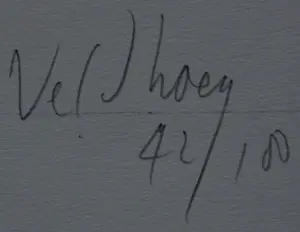 Veldhoen
42/100